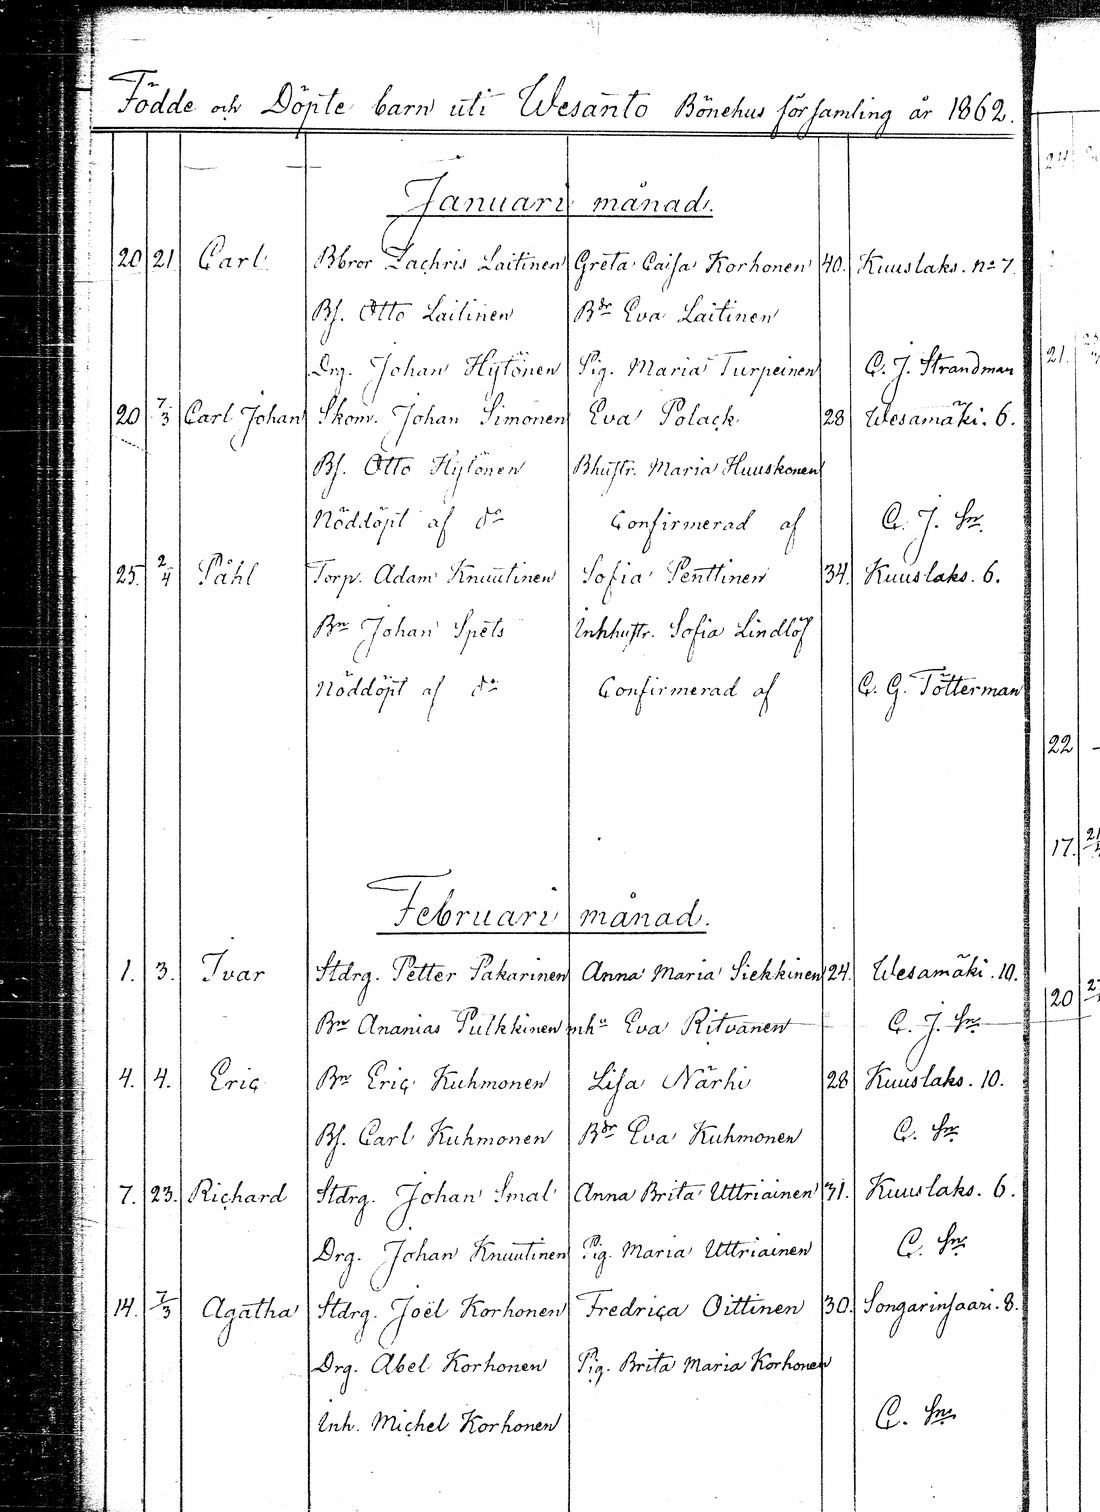 Födde och Döpte barn uti Wesanto Bönehus församling år 1862.
Januari månad.
20 21 Carl Bbror Zachris Laitinen Greta Caisa Korhonen 40. Kuuslaks. no 7.
Bs. Otto Laitinen Bdr Eva Laitinen
Drg. Johan Hytönen Pig. Maria Turpeinen C. J. Strandman
20 7/3 Carl Johan Skom. Johan Simonen Eva Polack 28 Wesamäki. 6.
Bs. Otto Hytönen Bhustr. Maria Huuskonen
Nöddöpt af do Confirmerad af C. J. Sn.
25. 2/4 Påhl Torp. Adam Knuutinen Sofia Penttinen 34. Kuuslaks. 6.
Bn Johan Spets Inhhustr. Sofia Lindlöf
Nöddöpt af do Confirmerad af C. G. Tötterman
Februari månad.
1. 3. Ivar Stdrg. Petter Pakarinen Anna Maria Siekkinen 24. Wesamäki. 10.
Bn Ananias Pulkkinen inhu Eva Ritvanen C. J. Sn.
4. 4. Eric Bn Eric Kuhmonen Lisa Närhi 28 Kuuslaks. 10.
Bs. Carl Kuhmonen Bdr Eva Kuhmonen C. Sn.
7. 23. Richard Stdrg. Johan Smal Anna Brita Uttriainen 31. Kuuslaks. 6.
Drg. Johan Knuutinen Pig. Maria Uttriainen C. Sn.
14. 7/3 Agatha Stdrg. Joël Korhonen Fredrica Oittinen 30. Songarinsaari. 8.
Drg. Abel Korhonen Pig. Brita Maria Korhonen
Inh. Michel Korhonen C. Sn.
24
21.
22
17.
20